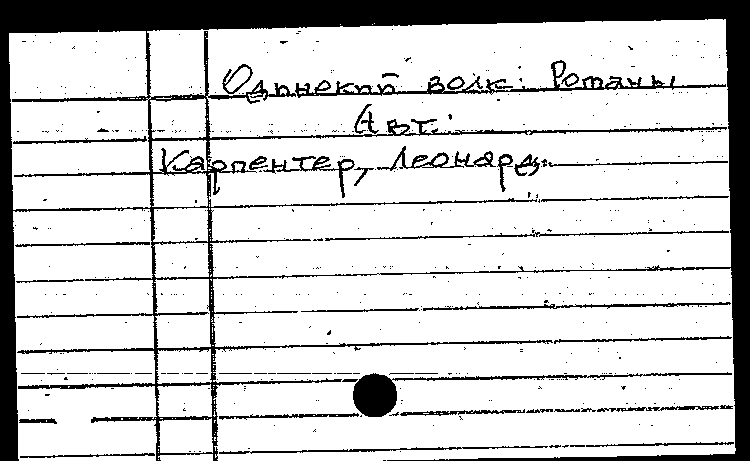 Одинокий волк: Романы
Авт.:
Карпентер, Леонард.